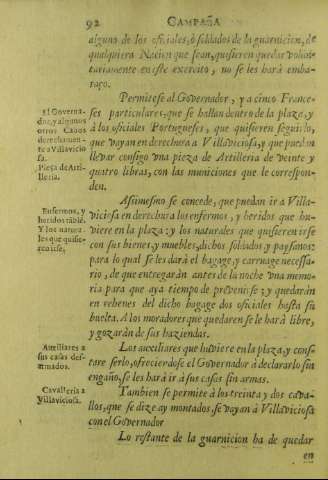 92 CAMPAÑA
alguno de los oficiales, ò soldados de la guarnicion, de
qualquiera Nacion que sean, quisieren quedar volun-
tariamente en este exercito, no se les hará emba-
raço.
Permitese al Governador, y a cinco France-
ses particulares, que se hallan dentro de la plaza, y
à los oficiales Portugueses, que quisieren seguirlo,
que vayan en derechura a Villaviciosa, y que puedan
llevar consigo una pieza de Artilleria de veinte y
quatro libras, con las municiones que le correspon-
den.
El Governa-
dor, y algunos
otros Cabos
derechamen-
te a Villavicio
sa.
Pieça de Arti-
lleria.
Assimesmo se concede, que puedan ir a Villa-
viciosa en derechura los enfermos, y heridos que hu-
viere en la plaza: y los naturales que quisieren irse
con sus bienes, y muebles, dichos soldados, y paysanos:
para lo qual se les dará el bagage, y carruage necessa-
rio, de que entregarán antes de la noche una memo-
ria para que aya tiempo de prevenirse; y quedarán
en rehenes del dicho bagage dos oficiales hasta su
buelta. A los moradores que quedaren se le hará libre,
y gozarán de sus haziendas.
Enfermos, y
heridos tãbiẽ.
Y los natura-
les que quisie-
rẽ irse,
Los auxiliares que huviere en la plaza, y cons-
tare serlo, ofreciendose el Governador à declararlo sin
engaño, se les hará ir à sus casas sin armas.
Auxiliares a
sus casas des-
armados.
Tambien se permite à los treinta y dos cava-
llos, que se dize ay montados, se vayan à Villaviciosa
con el Governador
Cavalleria a
Villaviciosa.
Lo restante de la guarnicion ha de quedar
en